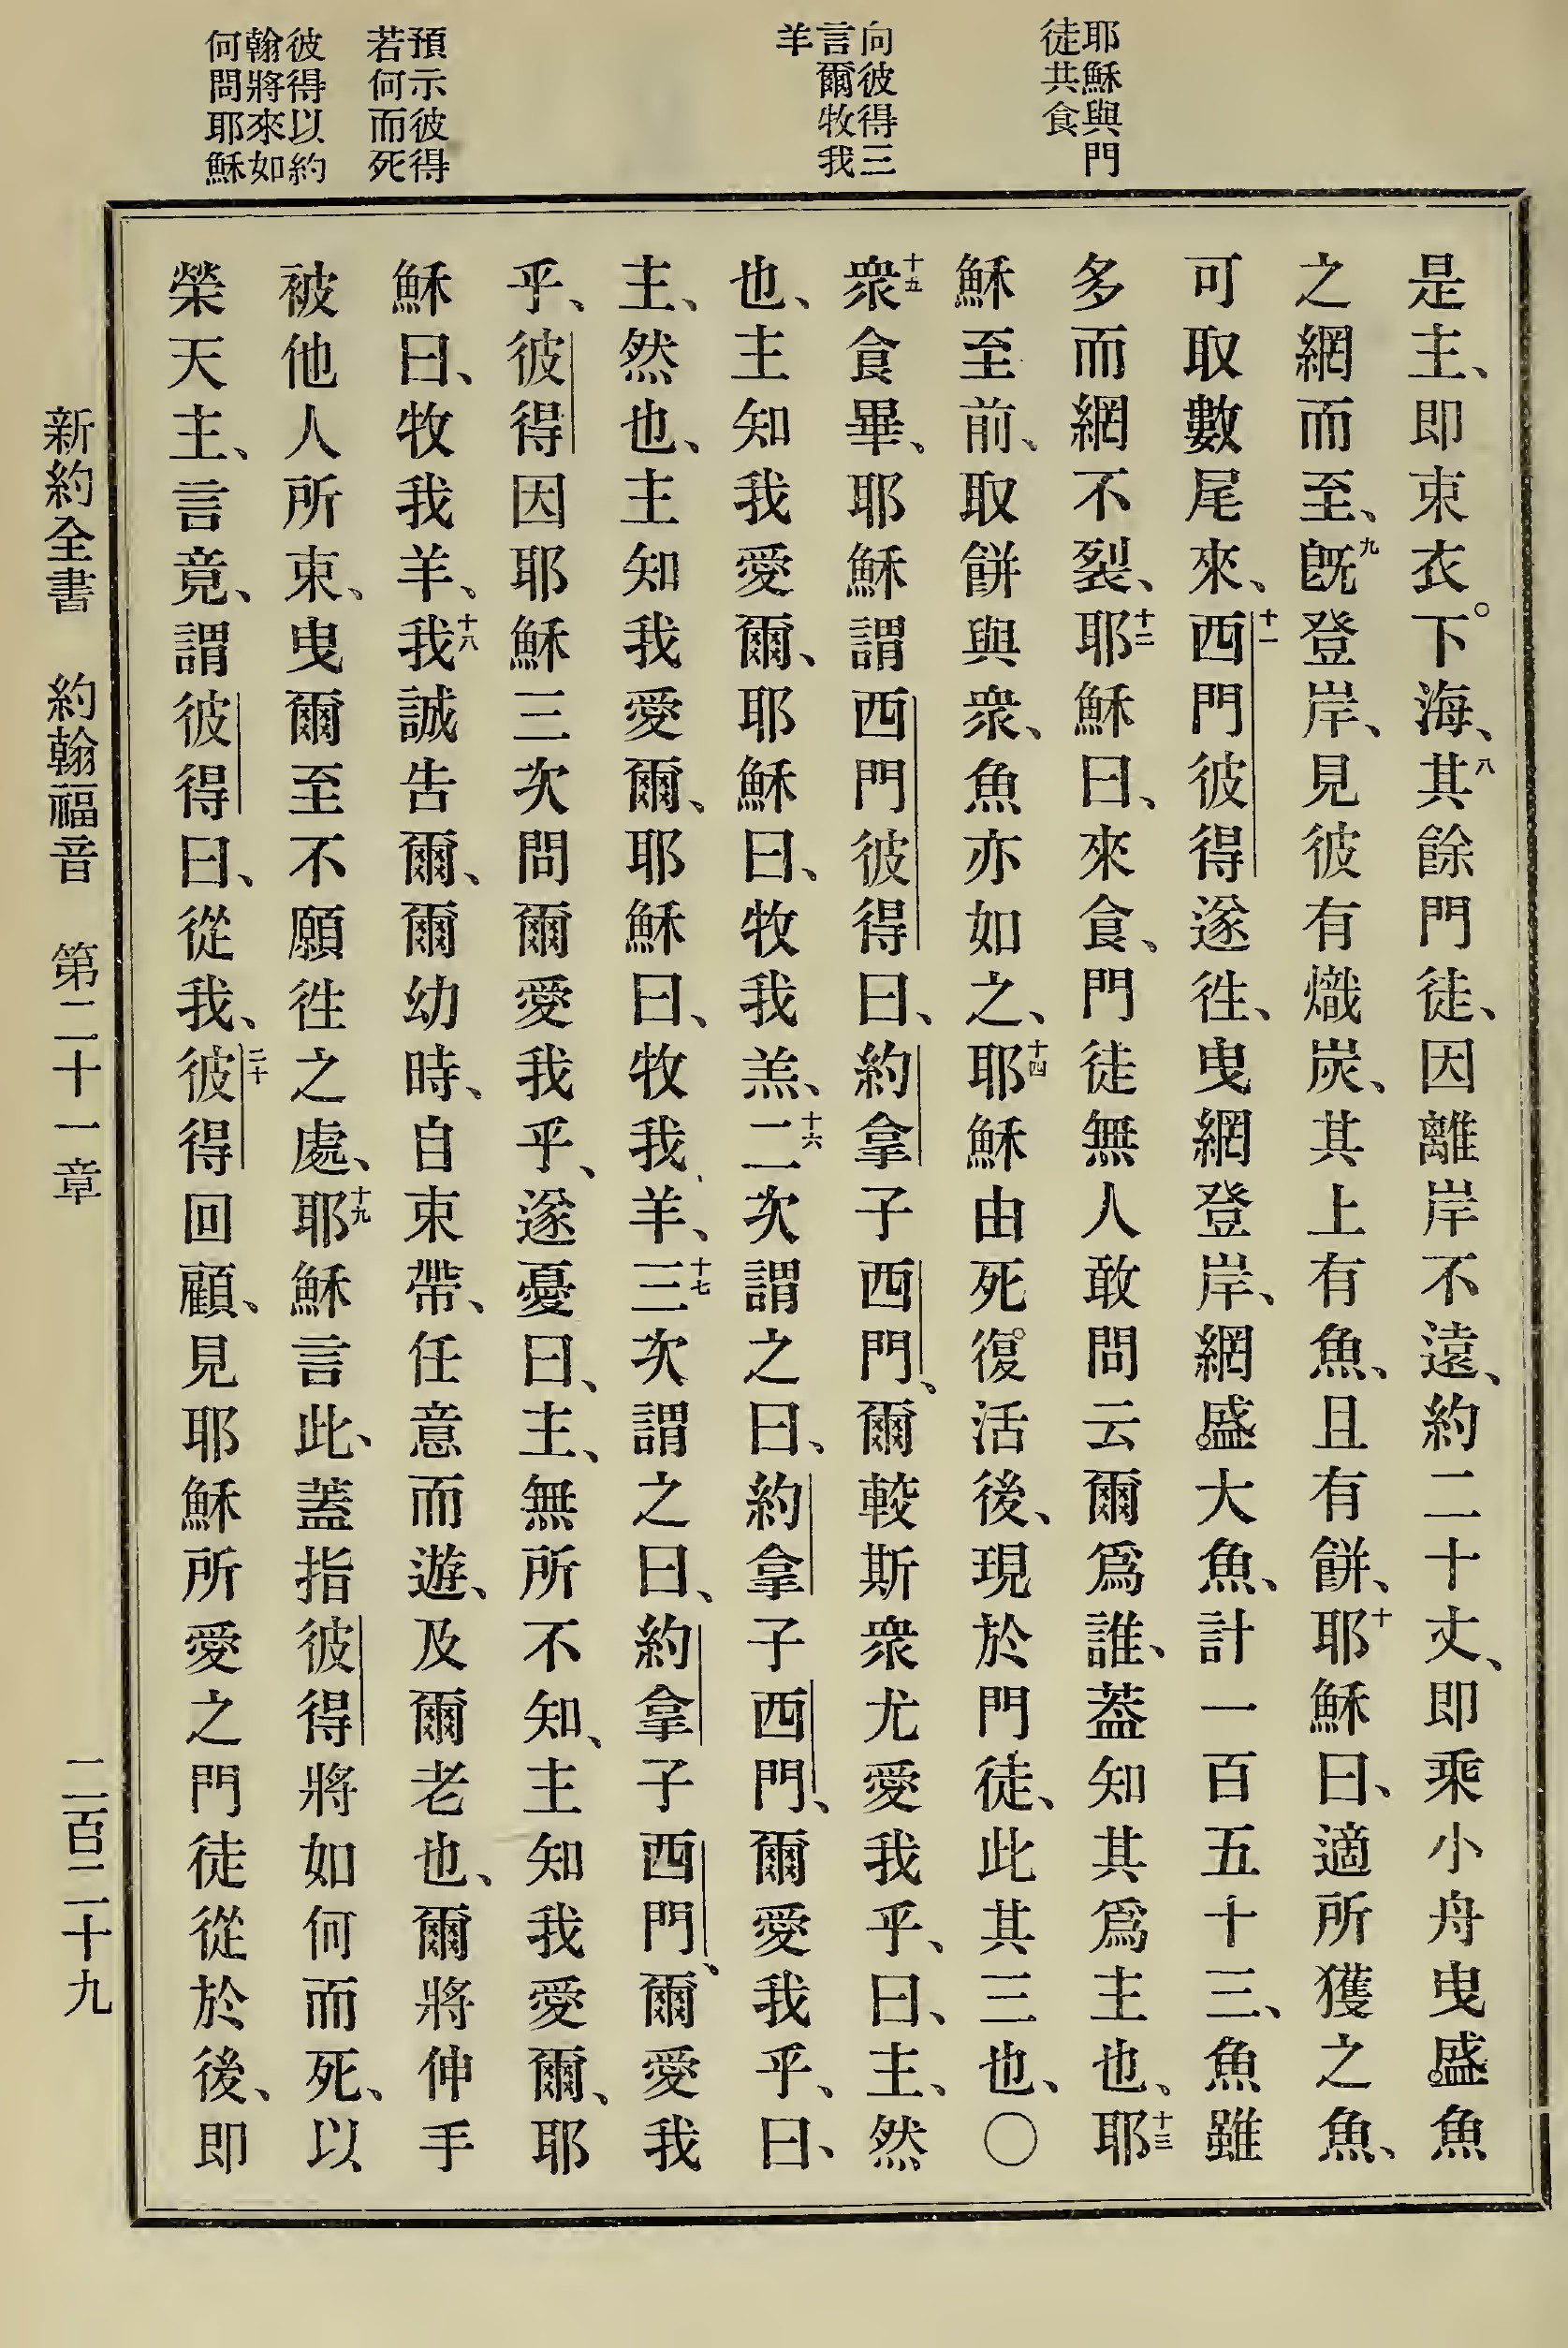 耶穌與門
徒共食
向彼得三
言爾牧我
羊
預示彼得
若何而死
彼得以約
翰將來如
何問耶穌
是主、即束衣下海、八其餘門徒、因離岸不遠、約二十丈、即乘小舟曳盛魚
之網而至、九旣登岸、見彼有熾炭、其上有魚、且有餅、十耶穌曰、適所獲之魚、
可取數尾來、十一西門彼得遂徃、曳網登岸、網盛大魚、計一百五十三、魚雖
多而網不裂、十二耶穌曰、來食、門徒無人敢問云爾爲誰、蓋知其爲主也、十三耶
穌至前、取餅與衆、魚亦如之、十四耶穌由死復活後、現於門徒、此其三也、〇
十五衆食畢、耶穌謂西門彼得曰、約拿子西門、爾較斯衆尤愛我乎、曰、主、然
也、主知我愛爾、耶穌曰、牧我羔、十六二次謂之曰、約拿子西門、爾愛我乎、曰、
主、然也、主知我愛爾、耶穌曰、牧我羊、十七三次謂之曰、約拿子西門、爾愛我
乎、彼得因耶穌三次問爾愛我乎、遂憂曰、主、無所不知、主知我愛爾、耶
穌曰、牧我羊、十八我誠告爾、爾幼時、自束帶、任意而遊、及爾老也、爾將伸手
被他人所束、曳爾至不願徃之處、十九耶穌言此、蓋指彼得將如何而死、以
榮天主、言竟、謂彼得曰、從我、二十彼得回顧、見耶穌所愛之門徒從於後、即
新約全書 約翰福音 第二十一章 二百二十九